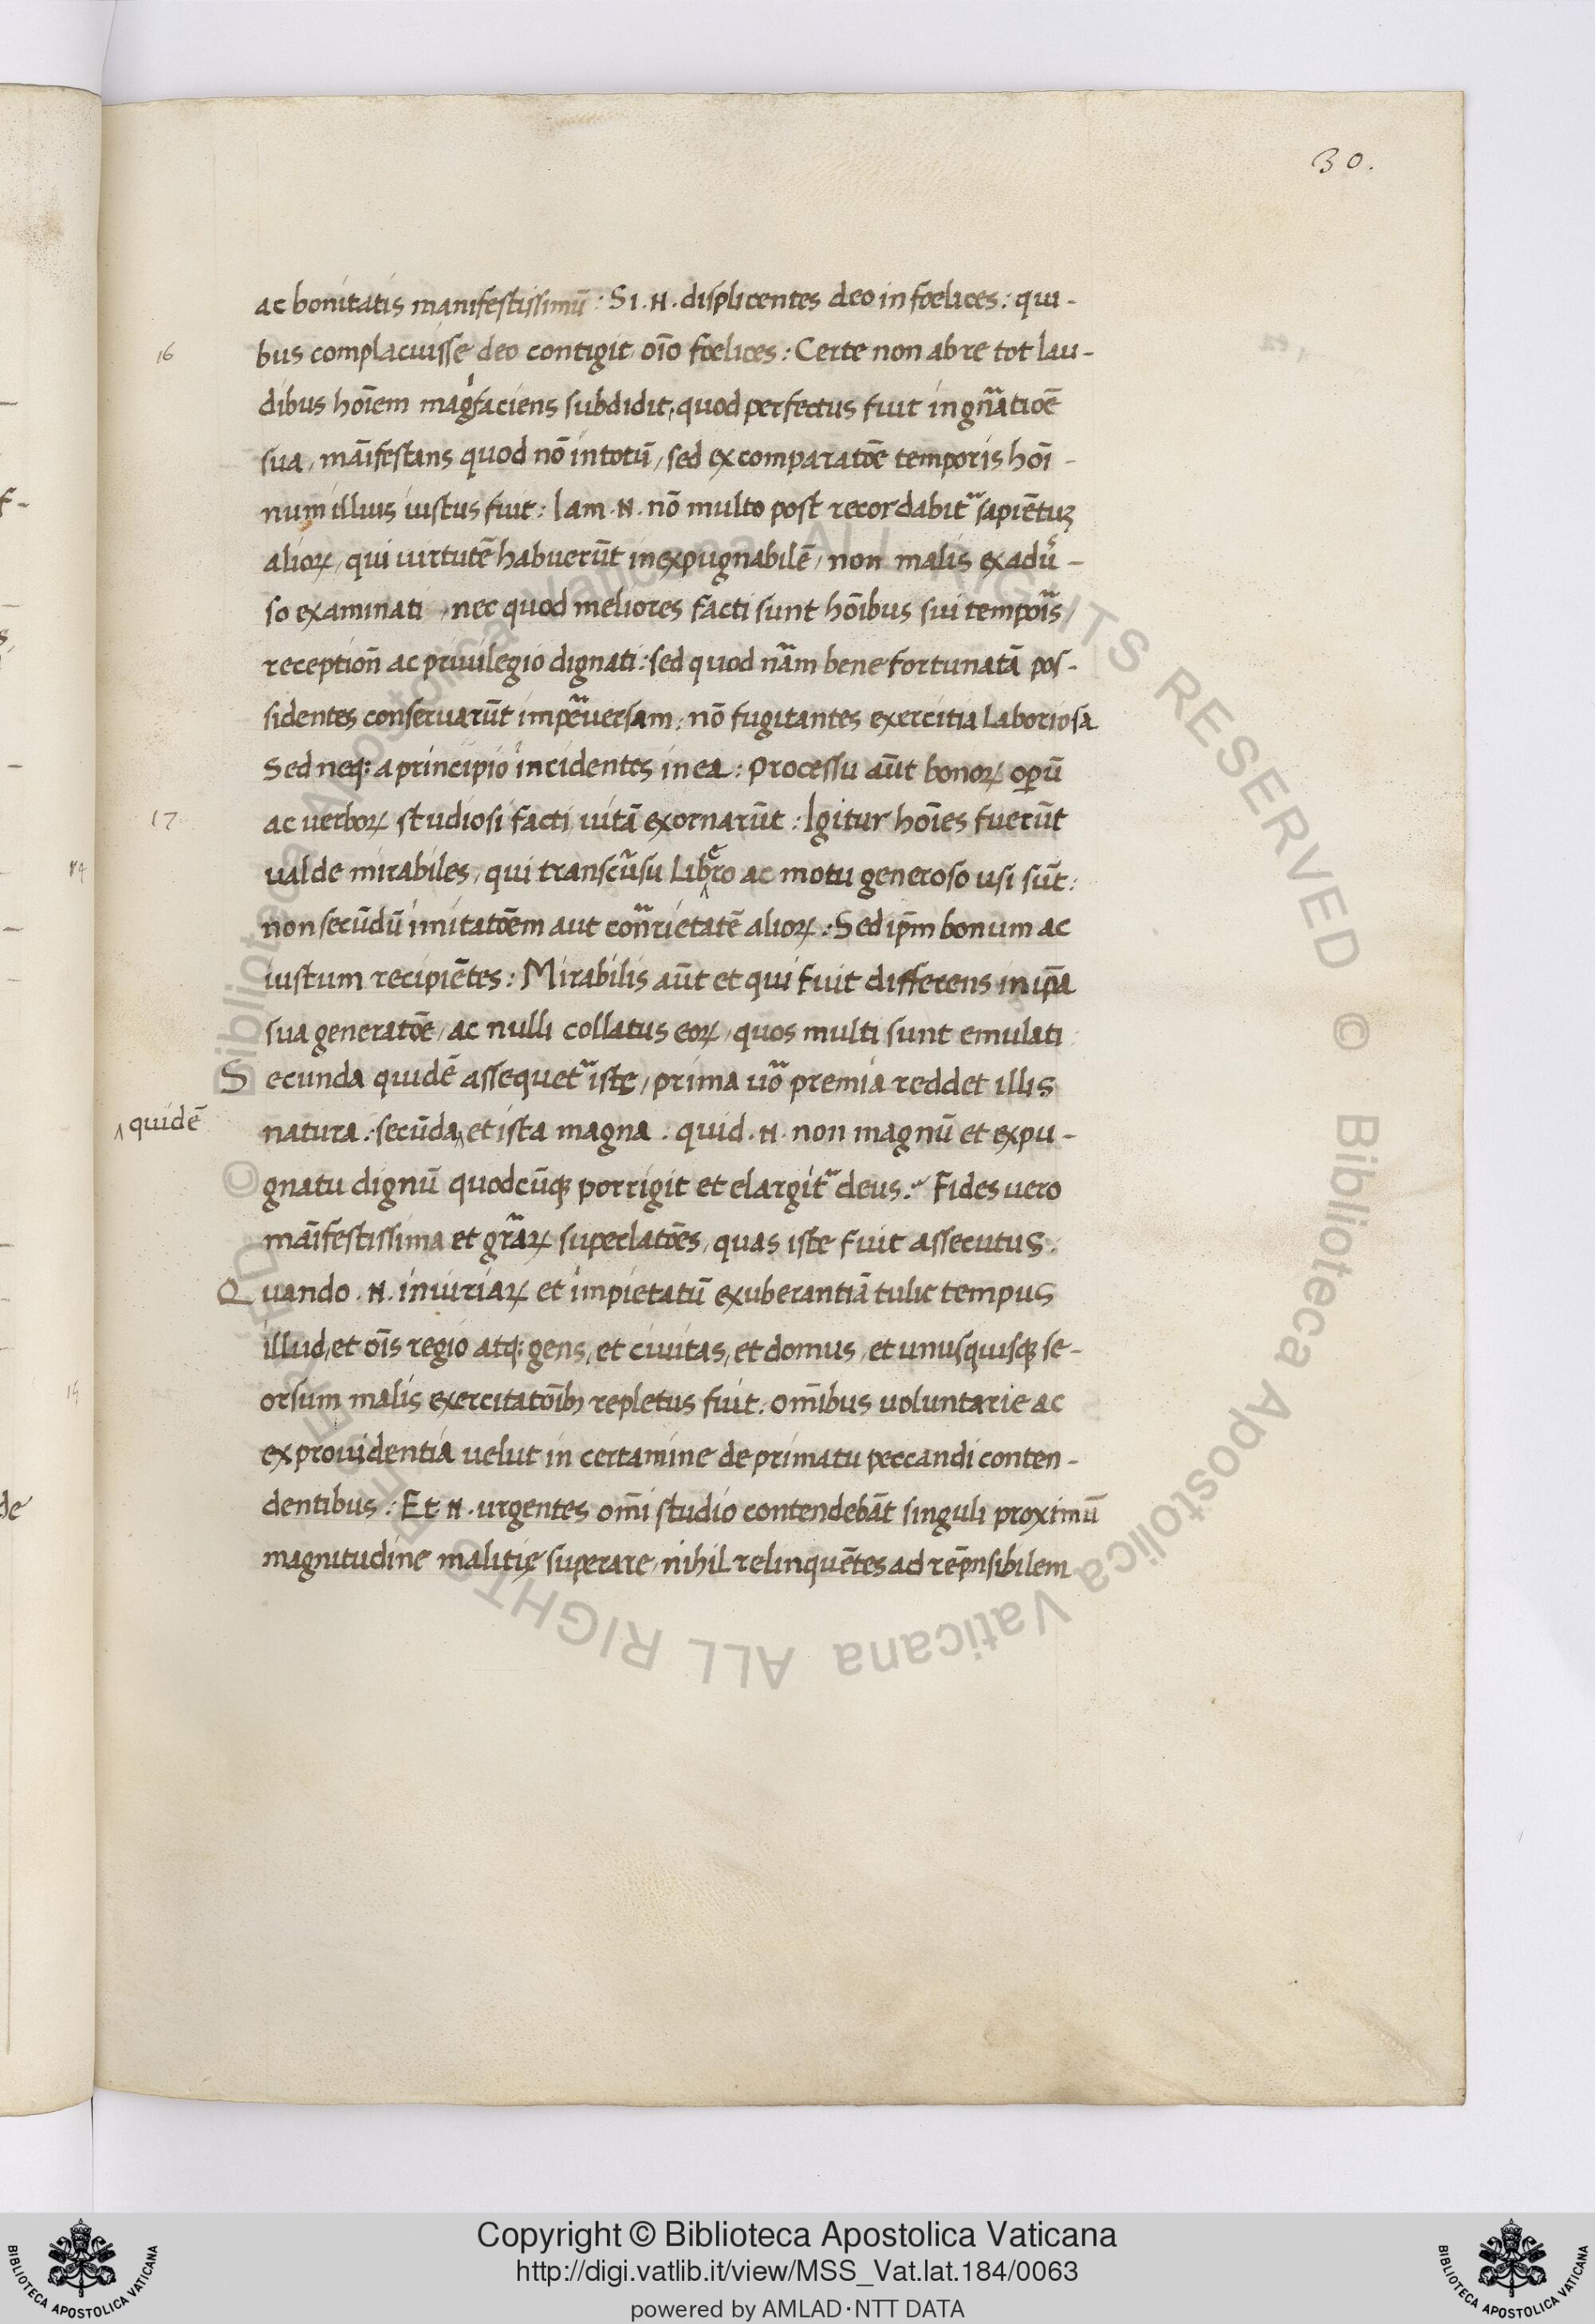 30.
ac bonitatis manifestissimū : Si .N. displicentes deo infoelices : qui-
16
bus complacuisse deo contigit, oīo foelices : Certe non ab re tot lau-
dibus hoīem magfaciens subdidit, quod perfectus fuit in gnātioē
sua, māifestans quod nō in totū, sed ex comparatōe temporis hoī-
num illius iustus fuit : Iam .N. nō multo post recordabit sapiētuꝝ
alioꝝ, qui virtutē habuerūt inexpugnabilē, non malis ex adū-
so examinati, nec quod meliores facti sunt hōibus sui tempois,
receptioñ ac privilegio dignati : sed quod nām bene fortunatā pos-
sidentes conservarūt impeversam : nō fugitantes exercitia laboriosa
Sed neq; a principio incidentes in ea : Processu aūt bonoꝝ opū
17
ac verboꝝ studiosi facti vitā exornarūt : Igitur hoīes fuerūt
valde mirabiles, qui transcūsu libero ac motu generoso usi sūt :
non secūdū imitatōem aut conrietatē alioꝝ : Sed ipm̄ bonum ac
iustum recipiētes : Mirabilis aūt et qui fuit differens in ipā
sua generatōe, ac nulli collatus eoꝝ, quos multi sunt emulati
Secunda quidē assequet iste, prima uō premia reddet illis
^ quidē
natura : secūda ^ et ista magna : quid .N. non magnū et expu-
gnatu dignū quodcūq; porrigit et elargit deus : Fides vero
māifestissima et grāꝝ superlatōes, quas iste fuit assecutus :
Quando .N. iniuriaꝝ et impietatū exuberantiā tulit tempus
illud, et oīs regio atq; gens, et civitas, et domus, et unusquisq; se-
orsum malis exercitatōib; repletus fuit : omībus voluntarie ac
ex providentia velut in certamine de primatu peccandi conten-
dentibus : Et .N. urgentes omī studio contendebāt singuli proximū
magnitudine malitię superare, nihil relinquētes ad rēpnsibilem
© Biblioteca Apostolica Vaticana ALL RIGHTS RESERVED © Biblioteca Apostolica Vaticana ALL RIGHTS RESERVED
BIBLIOTECA APOSTOLICA VATICANA
Copyright © Biblioteca Apostolica Vaticana
http://digi.vatlib.it/view/MSS_Vat.lat.184/0063
powered by AMLAD·NTT DATA
BIBLIOTECA APOSTOLICA VATICANA